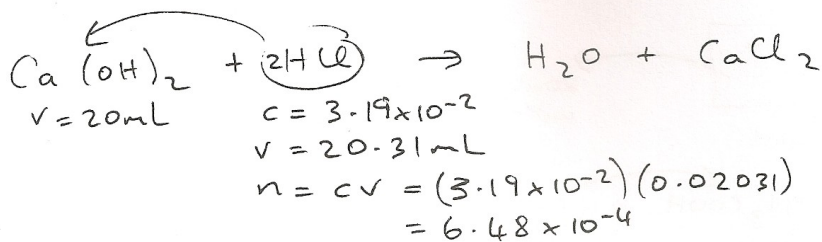 Ca(OH)₂ + 2HCl → H₂O + CaCl₂
v = 20mL
c = 3.19×10⁻²
v = 20.31mL
n = cv = (3.19×10⁻²)(0.02031)
= 6.48×10⁻⁴